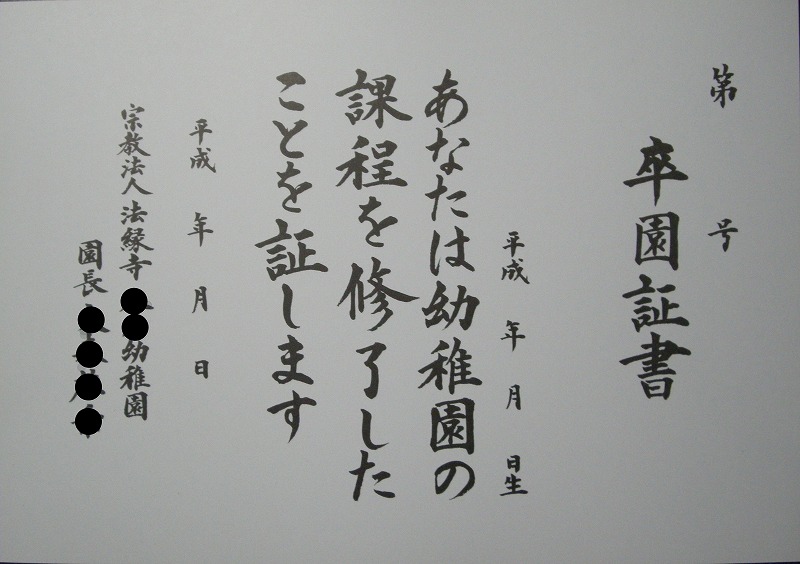 第 号
卒園証書
平成 年 月 日生
あなたは幼稚園の
課程を修了した
ことを証します
平成 年 月 日
宗教法人法縁寺 幼稚園
園長